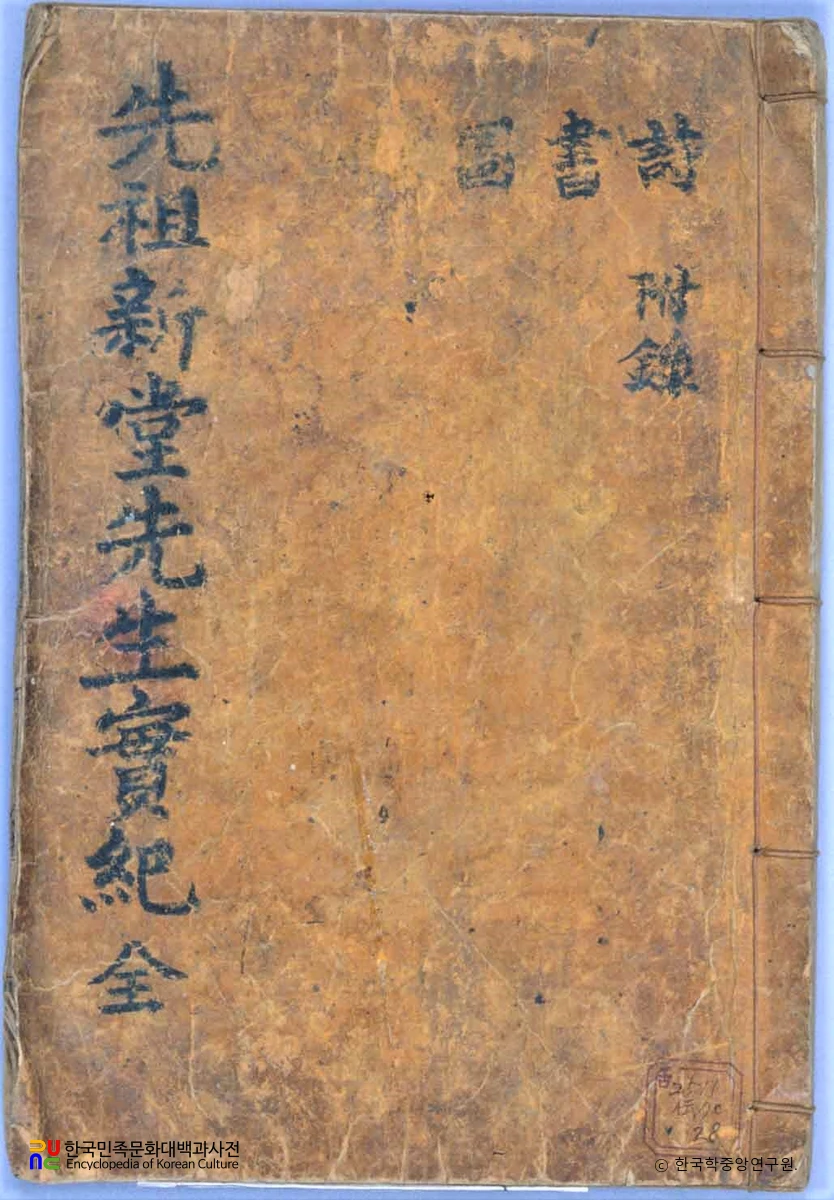 詩 附錄
書
圖
先祖新堂先生實紀 全
28
한국민족문화대백과사전
Encyclopedia of Korean Culture
© 한국학중앙연구원